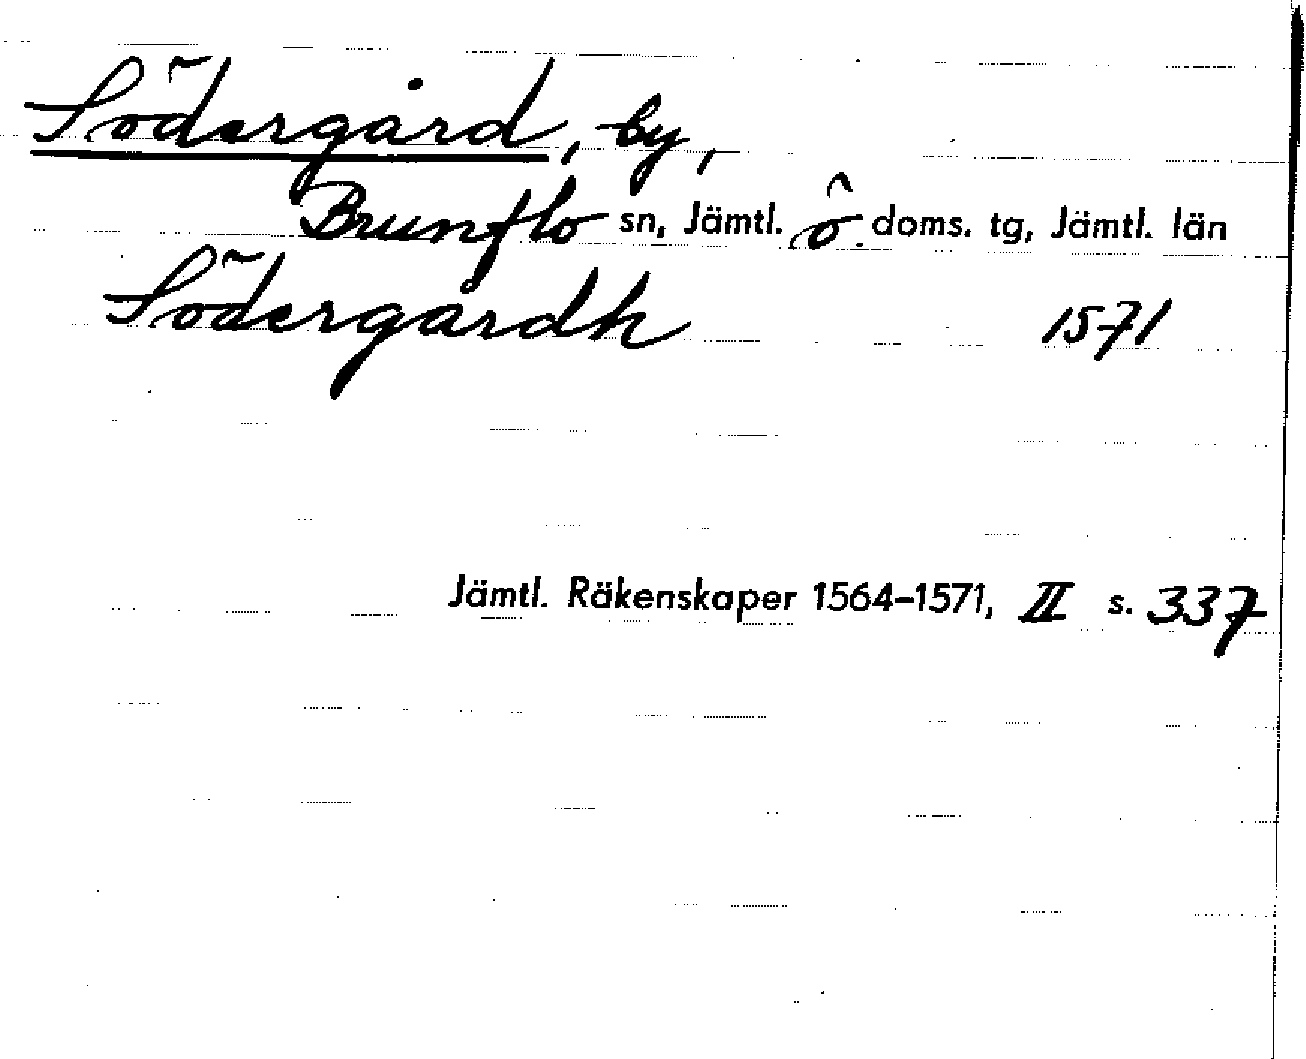 Södergård, by,
Brunflo sn, Jämtl. ö. doms. tg, Jämtl. län
Södergardh 1571
Jämtl. Räkenskaper 1564-1571, II s. 337